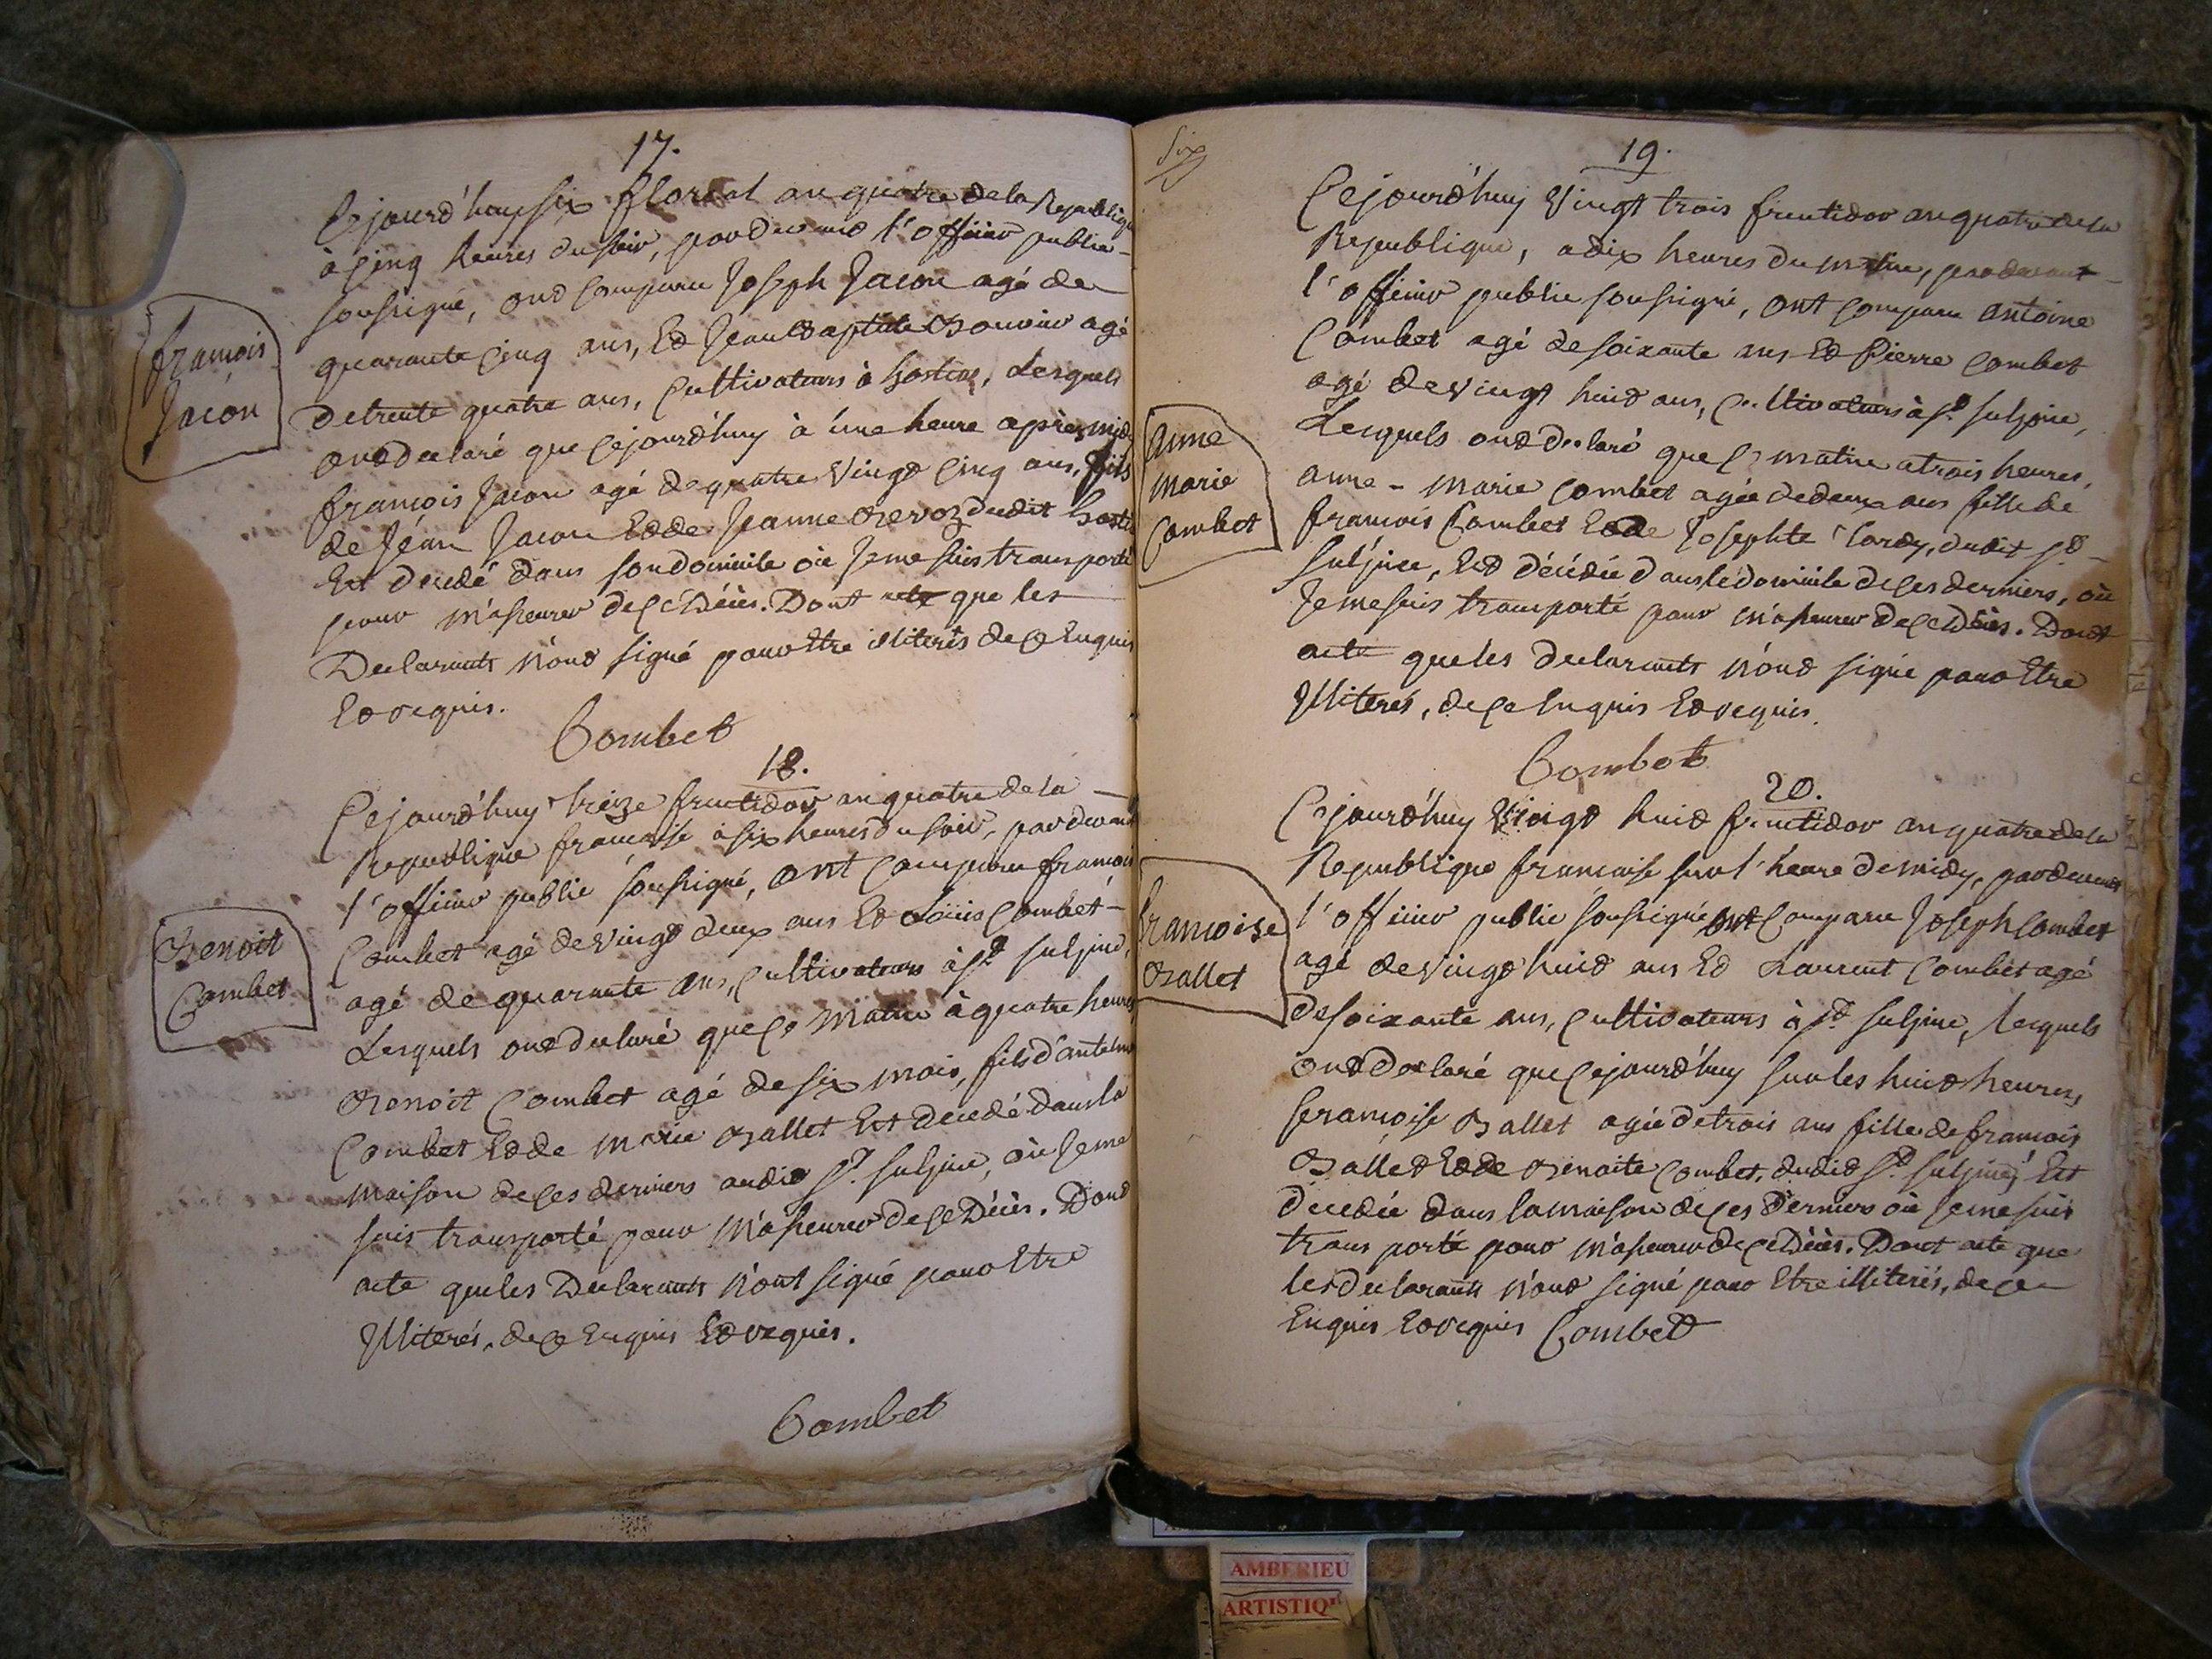 17.
Cejourd'huy six floreal an quatre de la Republique
à cinq heures du soir, pardevand l'officier public
soussigné, ond comparu Joseph Jacon agé de
quarante cinq ans, Ed Jean Baptiste Bouvier agé
de trente quatre ans, Cultivateurs à hostias, Lesquels
ond declaré que cejourd'huy à une heure après midy
françois Jacon agé de quatre vingd cinq ans, fils
de Jean Jacon Ed de Jeanne Brevoz dudit host
Est decedé dans son domicile où Je me suis transporté
pour m'asseurer de ce Décès. Dont acte que les
Declarants n'ond signé pour Etre illiterés de ce Enquis
Ed requis.
Combet
françois
Jacon
18.
Cejourd'huy treize fructidor an quatre de la
Republique française à six heures du soir, pardevant
l'officier public soussigné, ont comparu françois
Combet agé de vingd deux ans Ed Loüis Combet
agé de quarante ans, Cultivateurs à St. sulpice,
Lesquels ond declaré que ce matin à quatre heures
Benoit Combet agé de six mois, fils d'antelme
Combet Ed de marie Ballet Est decedé dans la
maison de ces derniers audid St. sulpice, où Je me
suis transporté pour m'asseurer de ce Décès. Dond
acte que les Declarants n'ont signé pour Etre
Illiterés, de ce Enquis Ed requis.
Combet
Benoit
Combet
Six
19.
Cejourd'huy Vingt trois fructidor an quatre de la
Republique, a dix heures du matin, pardevant
l'officier public soussigné, ont comparu antoine
Combet agé de soixante ans Ed Pierre Combet
agé de vingt huid ans, Cultivateurs à St. sulpice,
Lesquels ond declaré que ce matin a trois heures,
anne - marie Combet agée de deux ans fille de
francois Combet Ed de Josephte Cardy, dudit St.
Sulpice, Est décédée dans le domicile de ces derniers, où
Je me suis transporté pour m'asseurer de ce Décès. Dont
acte que les declarants n'ond signé pour Etre
Illiterés, de ce Enquis Ed requis.
Combet
anne
marie
Combet
20.
Cejourd'huy Vingd huid fructidor an quatre de la
Republique francaise sur l'heure de midy, pardevant
l'officier public soussigné ont Comparu Joseph Combet
agé de vingd huid ans Ed Laurent Combet agé
de soixante ans, Cultivateurs à St. sulpice, lesquels
ond declaré que cejourd'huy sur les huid heures,
françoise Ballet agée de trois ans fille de francois
Balled Ed de Benoite Combet, dudid St. sulpice, Est
decedée dans la maison de ces Derniers où Je me suis
transporté pour m'asseurer de ce Décès. Dont acte que
les declarants n'ond signé pour Etre illiterés, de ce
Enquis Ed requis Combet
françoise
Ballet
AMBERIEU
ARTISTIQ